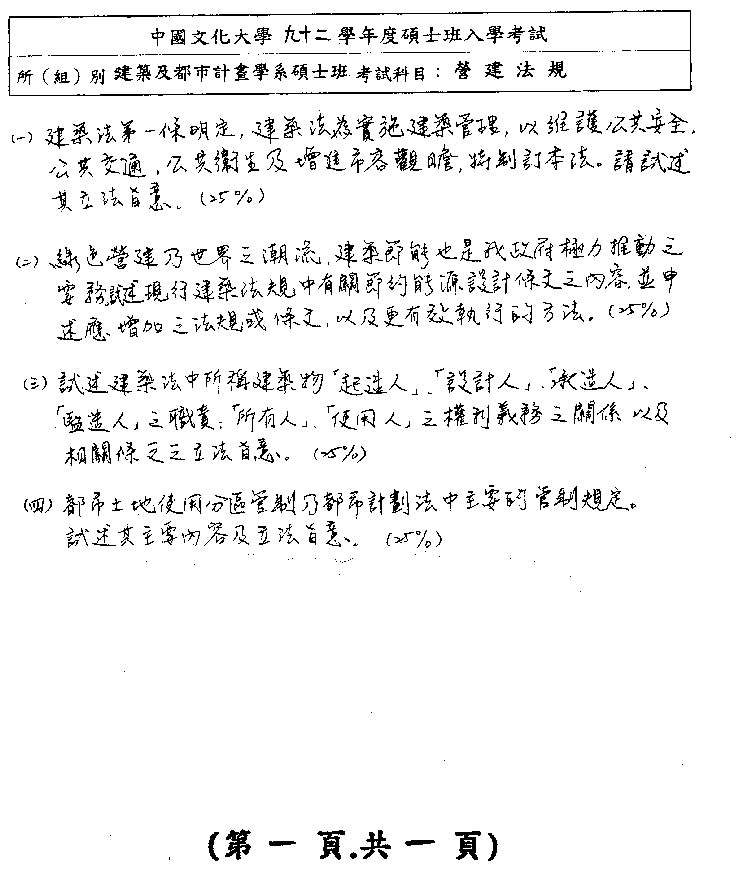 中國文化大學 九十二 學年度碩士班入學考試
所（組）別 建築及都市計畫學系碩士班 考試科目： 營建法規
(一) 建築法第一條明定，建築法為實施建築管理，以維護公共安全、
公共交通，公共衛生及增進市容觀瞻，特制訂本法。請試述
其立法旨意。(25%)
(二) 綠色營建乃世界之潮流，建築節能也是我政府極力推動之
要務試述現行建築法規中有關節約能源設計條文之內容並申
述應增加之法規或條文，以及更有效執行的方法。(25%)
(三) 試述建築法中所稱建築物「起造人」、「設計人」、「承造人」、
「監造人」之職責；「所有人」、「使用人」之權利義務之關係以及
相關條文之立法旨意。(25%)
(四) 都市土地使用分區管制乃都市計劃法中主要的管制規定。
試述其主要內容及立法旨意。(25%)
(第一頁.共一頁)